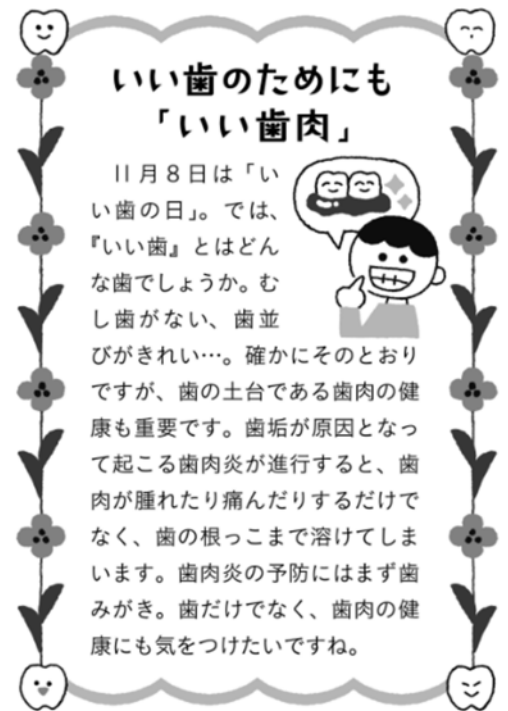 いい歯のためにも
「いい歯肉」
11月8日は「い
い歯の日」。では、
『いい歯』とはどん
な歯でしょうか。む
し歯がない、歯並
びがきれい…。確かにそのとおり
ですが、歯の土台である歯肉の健
康も重要です。歯垢が原因となっ
て起こる歯肉炎が進行すると、歯
肉が腫れたり痛んだりするだけで
なく、歯の根っこまで溶けてしま
います。歯肉炎の予防にはまず歯
みがき。歯だけでなく、歯肉の健
康にも気をつけたいですね。